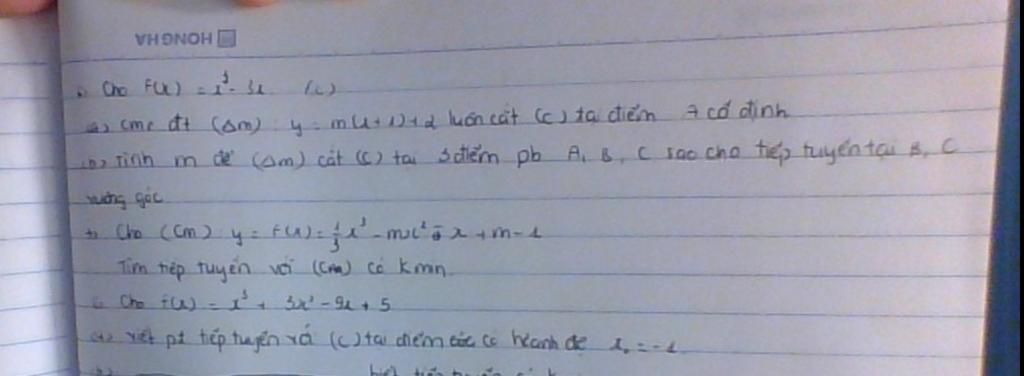 HONGHA
Cho f(x) = x³ - 3x (C)
a) cmr đt (Δm): y = m(x+1)+2 luôn cắt (C) tại điểm A cố định
b) Tính m để (Δm) cắt (C) tại 3 điểm pb A, B, C sao cho tiếp tuyến tại B, C
vuông góc
Cho (Cm) y = f(x) = 1/3 x³ - mx² - x + m - 1
Tìm tiếp tuyến với (Cm) có kmin
Cho f(x) = x³ + 3x² - 9x + 5
a) viết pt tiếp tuyến với (C) tại điểm có hoành độ x₀ = -1
tiếp tuyến có k